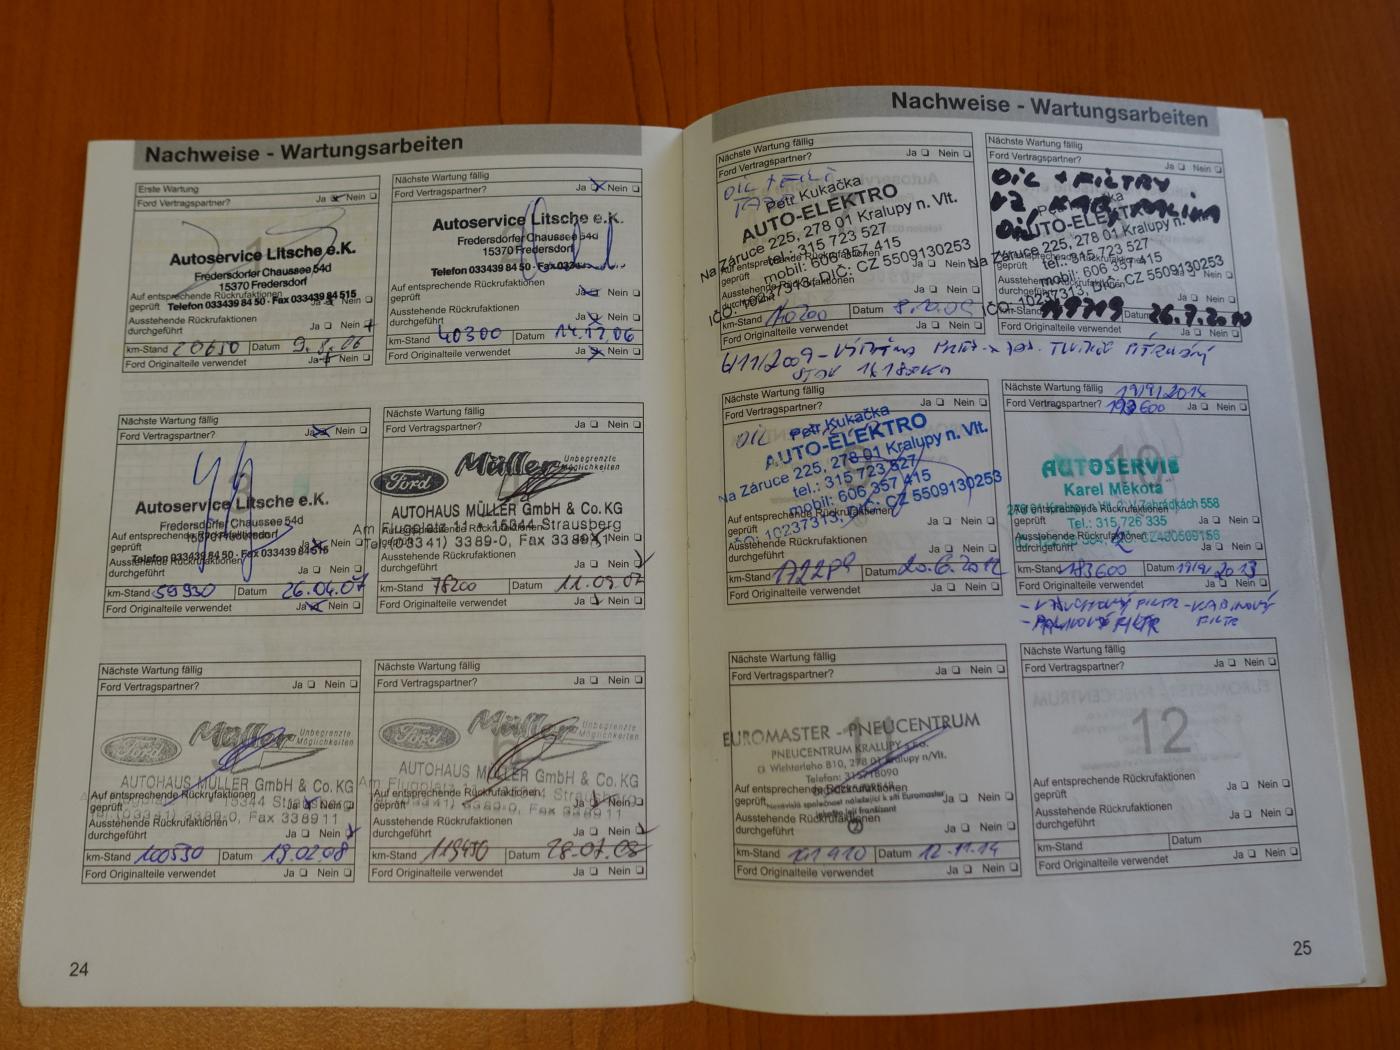 Nachweise - Wartungsarbeiten
Erste Wartung
Ford Vertragspartner? Ja Nein
Autoservice Litsche e.K.
Fredersdorfer Chaussee 54d
15370 Fredersdorf
Telefon 033439 84 50 · Fax 033439 84 515
Auf entsprechende Rückrufaktionen
geprüft Ja Nein
Ausstehende Rückrufaktionen
durchgeführt Ja Nein
km-Stand 20650 Datum 9.3.06
Ford Originalteile verwendet Ja Nein
Nächste Wartung fällig
Ford Vertragspartner? Ja Nein
Autoservice Litsche e.K.
Fredersdorfer Chaussee 54d
15370 Fredersdorf
Telefon 033439 84 50 · Fax
Auf entsprechende Rückrufaktionen
geprüft Ja Nein
Ausstehende Rückrufaktionen
durchgeführt Ja Nein
km-Stand 40300 Datum 14.12.06
Ford Originalteile verwendet Ja Nein
Nächste Wartung fällig
Ford Vertragspartner? Ja Nein
Autoservice Litsche e.K.
Fredersdorfer Chaussee 54d
15370 Fredersdorf
Auf entsprechende Rückrufaktionen
geprüft Ja Nein
Telefon 033439 84 50 · Fax 033439 84 515
Ausstehende Rückrufaktionen
durchgeführt Ja Nein
km-Stand 59930 Datum 26.04.07
Ford Originalteile verwendet Ja Nein
Nächste Wartung fällig
Ford Vertragspartner? Ja Nein
Ford Müller Unbegrenzte
Möglichkeiten
AUTOHAUS MÜLLER GmbH & Co. KG
Am Flugplatz 11 • 15344 Strausberg
Tel. (03341) 3389-0, Fax 338911
Auf entsprechende Rückrufaktionen
geprüft Ja Nein
Ausstehende Rückrufaktionen
durchgeführt Ja Nein
km-Stand 78200 Datum 11.09.07
Ford Originalteile verwendet Ja Nein
Nächste Wartung fällig
Ford Vertragspartner? Ja Nein
Ford Müller Unbegrenzte
Möglichkeiten
AUTOHAUS MÜLLER GmbH & Co. KG
15344 Strausberg
Tel. (03341) 3389-0, Fax 338911
Auf entsprechende Rückrufaktionen
geprüft Ja Nein
Ausstehende Rückrufaktionen
durchgeführt Ja Nein
km-Stand 100530 Datum 19.02.08
Ford Originalteile verwendet Ja Nein
Nächste Wartung fällig
Ford Vertragspartner? Ja Nein
Ford Müller Unbegrenzte
Möglichkeiten
AUTOHAUS MÜLLER GmbH & Co. KG
Am Flugplatz Strausberg
(03341) 3389-0, Fax 338911
Auf entsprechende Rückrufaktionen
geprüft Ja Nein
Ausstehende Rückrufaktionen
durchgeführt Ja Nein
km-Stand 119450 Datum 28.07.08
Ford Originalteile verwendet Ja Nein
24
Nachweise - Wartungsarbeiten
Nächste Wartung fällig
Ford Vertragspartner? Ja Nein
OIL + FILTR
Petr Kukačka
AUTO-ELEKTRO
Na Záruce 225, 278 01 Kralupy n. Vlt.
tel.: 315 723 527
mobil: 606 357 415
IČO: 10237313, DIČ: CZ 5509130253
Auf entsprechende Rückrufaktionen
geprüft Ja Nein
Ausstehende Rückrufaktionen
durchgeführt
km-Stand 140200 Datum 8.10.09
Ford Originalteile verwendet Ja Nein
6/11/2009 - VÝMĚNA
STAV
Nächste Wartung fällig
Ford Vertragspartner? Ja Nein
OIL + FILTRY
Petr Kukačka
AUTO-ELEKTRO
Na Záruce 225, 278 01 Kralupy n. Vlt.
tel.: 315 723 527
mobil: 606 357 415
IČO: 10237313, DIČ: CZ 5509130253
geprüft
durchgeführt
km-Stand Datum 26.7.2010
Ford Originalteile verwendet Ja Nein
Nächste Wartung fällig
Ford Vertragspartner? Ja Nein
OIL
Petr Kukačka
AUTO-ELEKTRO
Na Záruce 225, 278 01 Kralupy n. Vlt.
tel.: 315 723 527
mobil: 606 357 415
IČO: 10237313, DIČ: CZ 5509130253
Auf entsprechende Rückrufaktionen
geprüft Ja Nein
Ausstehende Rückrufaktionen
durchgeführt Ja Nein
km-Stand Datum 20.6.2012
Ford Originalteile verwendet Ja Nein
Nächste Wartung fällig 19/9/2014
Ford Vertragspartner? Ja Nein
10
AUTOSERVIS
Karel Měkota
V Zahrádkách 558
Tel.: 315 726 335
Auf entsprechende Rückrufaktionen
geprüft Ja Nein
Ausstehende Rückrufaktionen
durchgeführt Ja Nein
km-Stand 183600 Datum 19/9/2013
Ford Originalteile verwendet Ja Nein
- VZDUCHOVÝ FILTR - KABINOVÝ
FILTR FILTR
Nächste Wartung fällig
Ford Vertragspartner? Ja Nein
11
EUROMASTER - PNEUCENTRUM
PNEUCENTRUM KRALUPY s.r.o.
Wichterleho 810, 278 01 Kralupy n/Vlt.
Telefon: 315718090
Auf entsprechende Rückrufaktionen
geprüft Ja Nein
Ausstehende Rückrufaktionen
durchgeführt Ja Nein
km-Stand 191410 Datum 12.11.14
Ford Originalteile verwendet Ja Nein
Nächste Wartung fällig
Ford Vertragspartner? Ja Nein
12
Auf entsprechende Rückrufaktionen
geprüft Ja Nein
Ausstehende Rückrufaktionen
durchgeführt Ja Nein
km-Stand Datum
Ford Originalteile verwendet Ja Nein
25